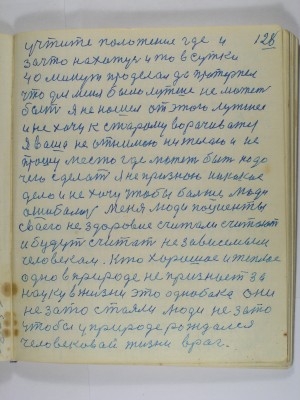 128
учтите положение где и
зачто нахожус и по в сутки
40 минут проделал до протерпел
что для меня было лутше не может
быть я не нашел от этого лутшее
и не хочу к старому ворачиватся
Я ваша не отнимою ни жалою и не
прошу место где может быть кодо
чего сделат я не признаю никакое
дело и не хочу чтобы болше люди
ошибалис меня люди поциенты
своего не здоровие считали считают
и будут считат не зависемаем
человекам. Кто хорошое и теплое
одно в природе не признает за
науку в жизни это однобока они
не зато стояли люди не зато
чтобы у природе рождался
человековай жизни враг.